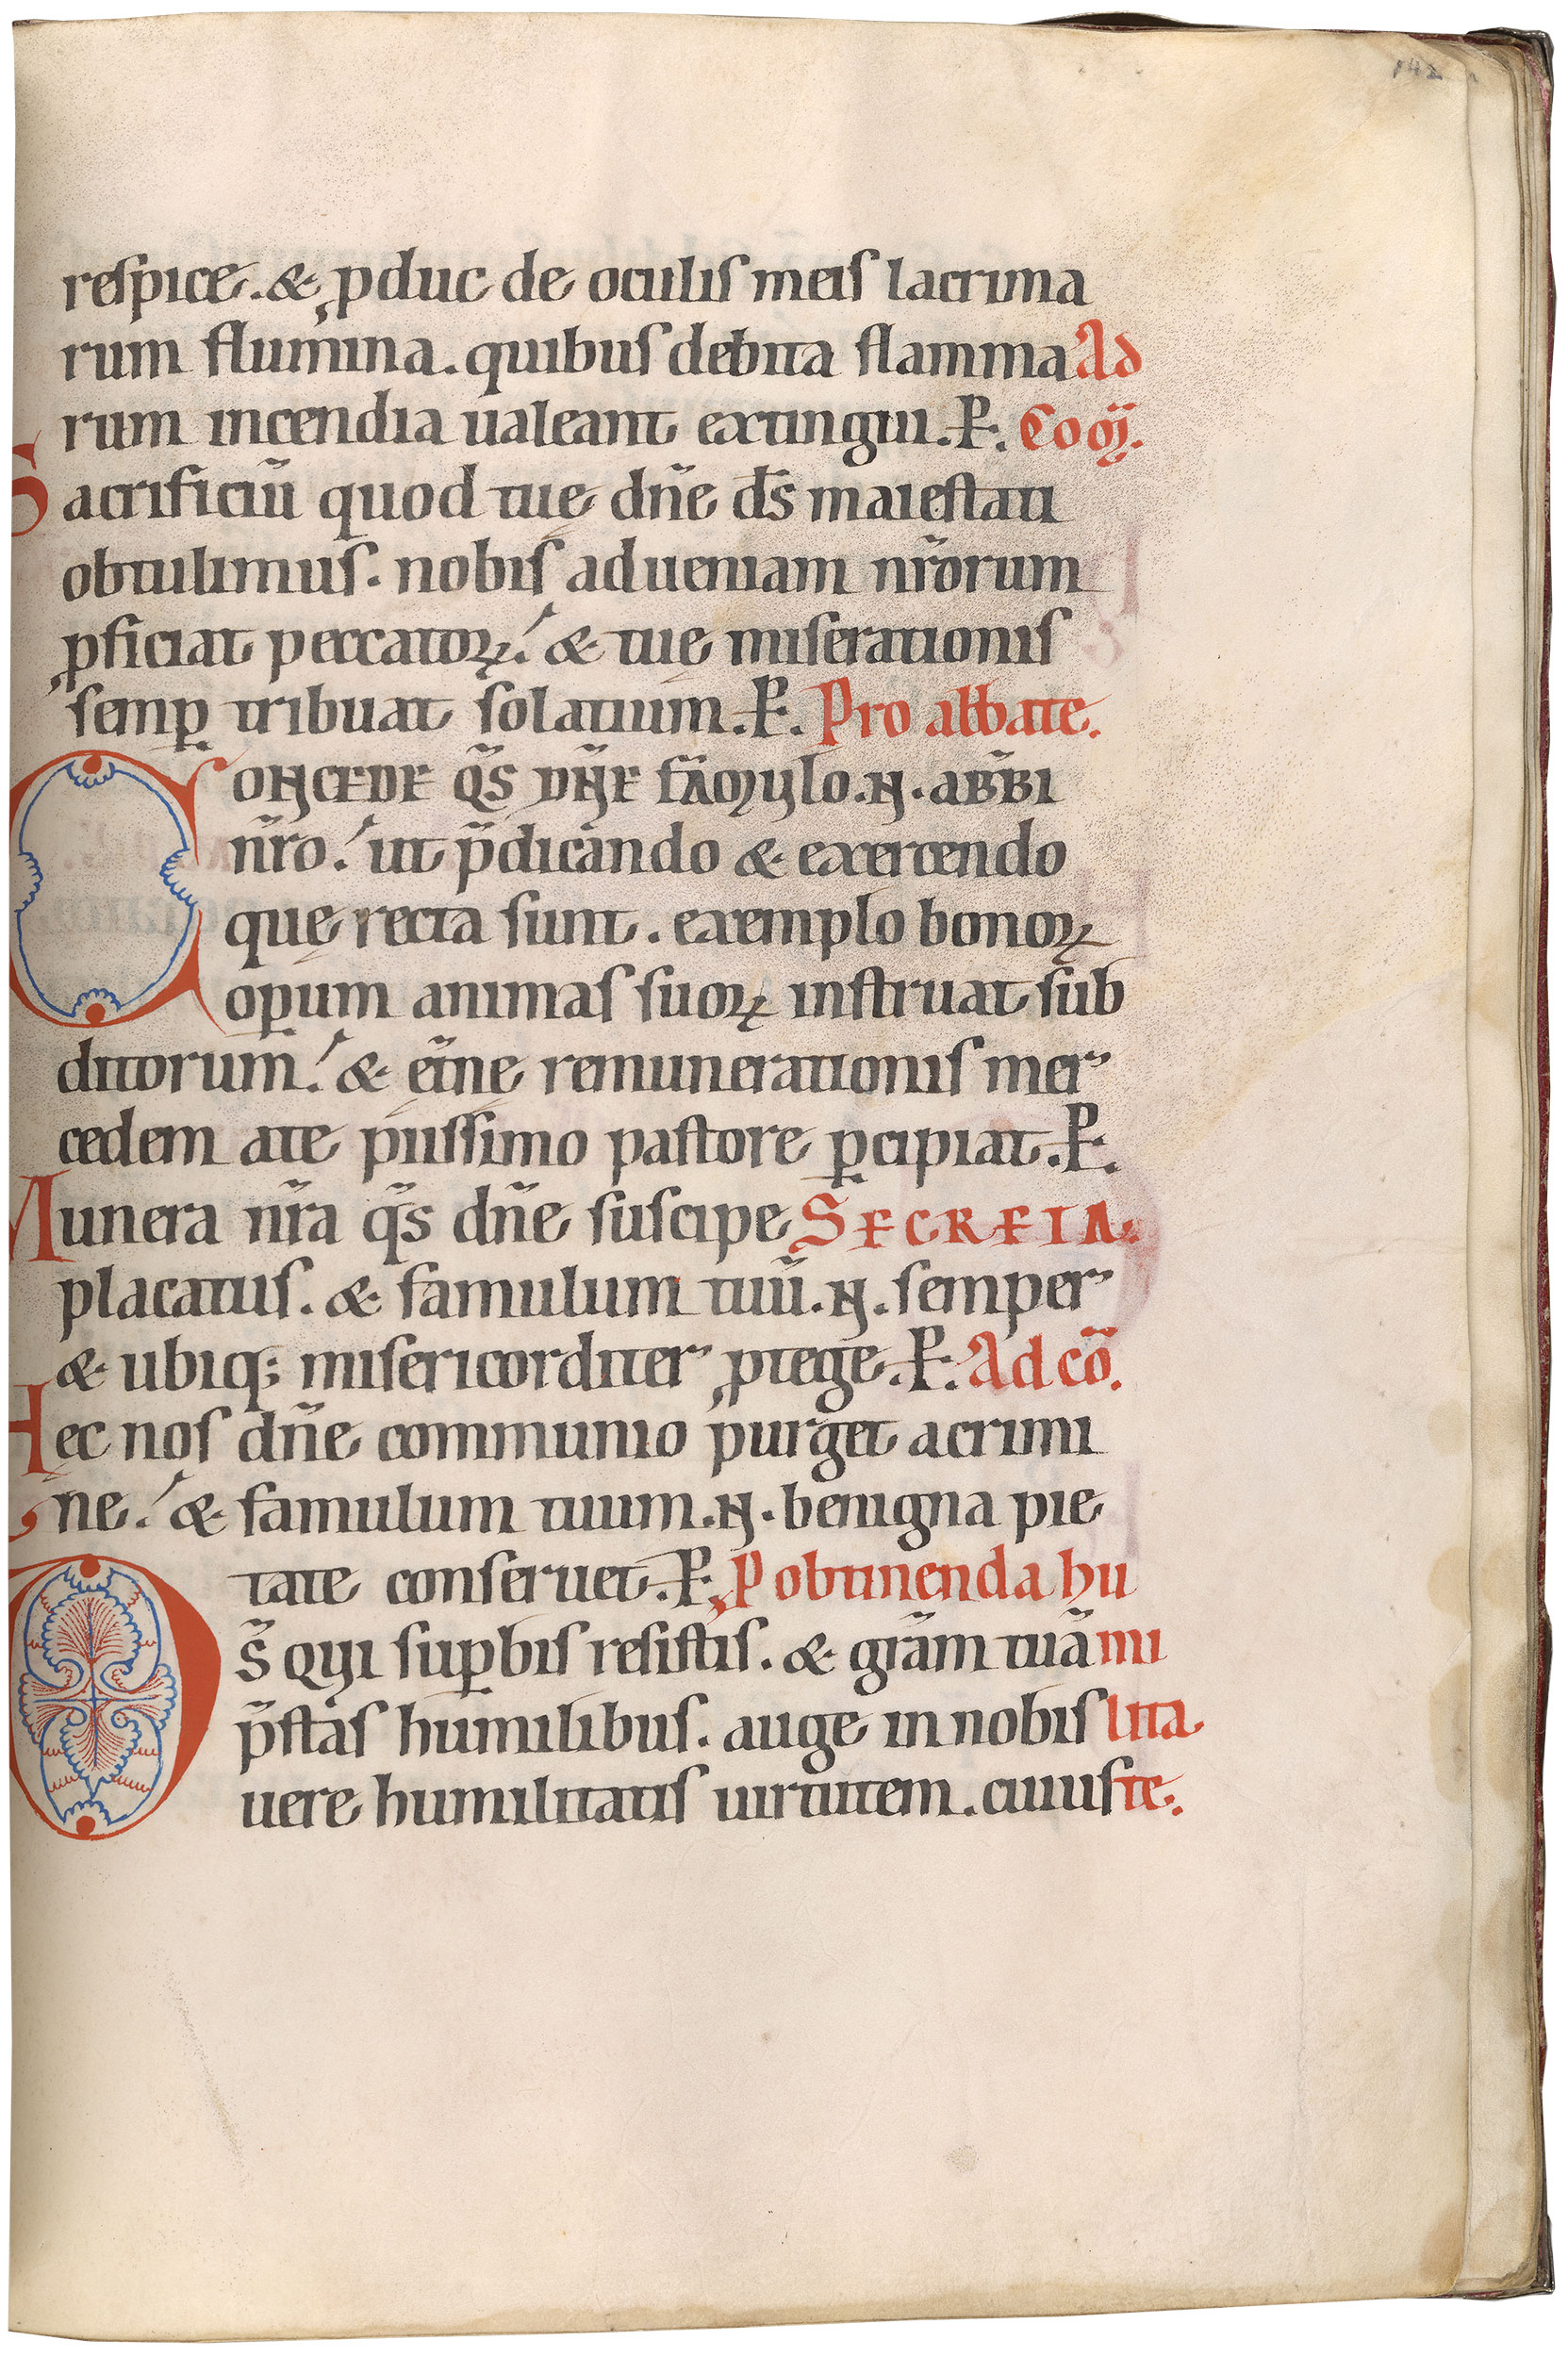 142
respice. & ꝓduc de oculis meis lacrima
rum flumina. quibus debita flamma Ad
rum incendia ualeant extingui. P̶. Com̄.
Sacrificiū quod tue dn̄e ds̄ maiestati
obtulimus. nobis adueniam nr̄orum
ꝓficiat peccatoꝝ. & tuę miserationis
semꝑ tribuat solatium. P̶. Pro abbate.
CONCEDE Q̄S DN̄E FĀMULO. N. ABB̄I
nr̄o. ut p̄dicando & exercendo
quę recta sunt. exemplo bonoꝝ
oꝑum animas suoꝝ instruat sub
ditorum. & et̄ne remunerationis mer
cedem ate piissimo pastore ꝑcipiat. P̶.
Munera nr̄a q̄s dn̄e suscipe SECRETA.
placatus. & famulum tuū. N. semper
& ubiq; misericorditer ꝓtege. P̶. Ad cō.
Hęc nos dn̄e communio purget acrimi
ne. & famulum tuum. N. benigna pie
tate conseruet. P̶. ꝓ obtinenda hu
DS̄ QUI suꝑbis resistis. & grām tuā mi
p̄stas humilibus. auge in nobis lita
uere humilitatis uirtutem. cuius te.